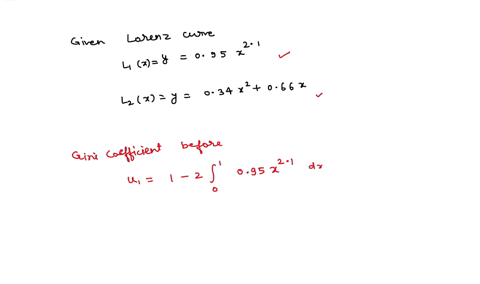 Given Lorenz curve
L₁(x)=y = 0.95 x^2.1 ✓
L₂(x)=y = 0.34 x² + 0.66x ✓
Gini coefficient before
u₁ = 1 - 2 ∫₀¹ 0.95 x^2.1 dx